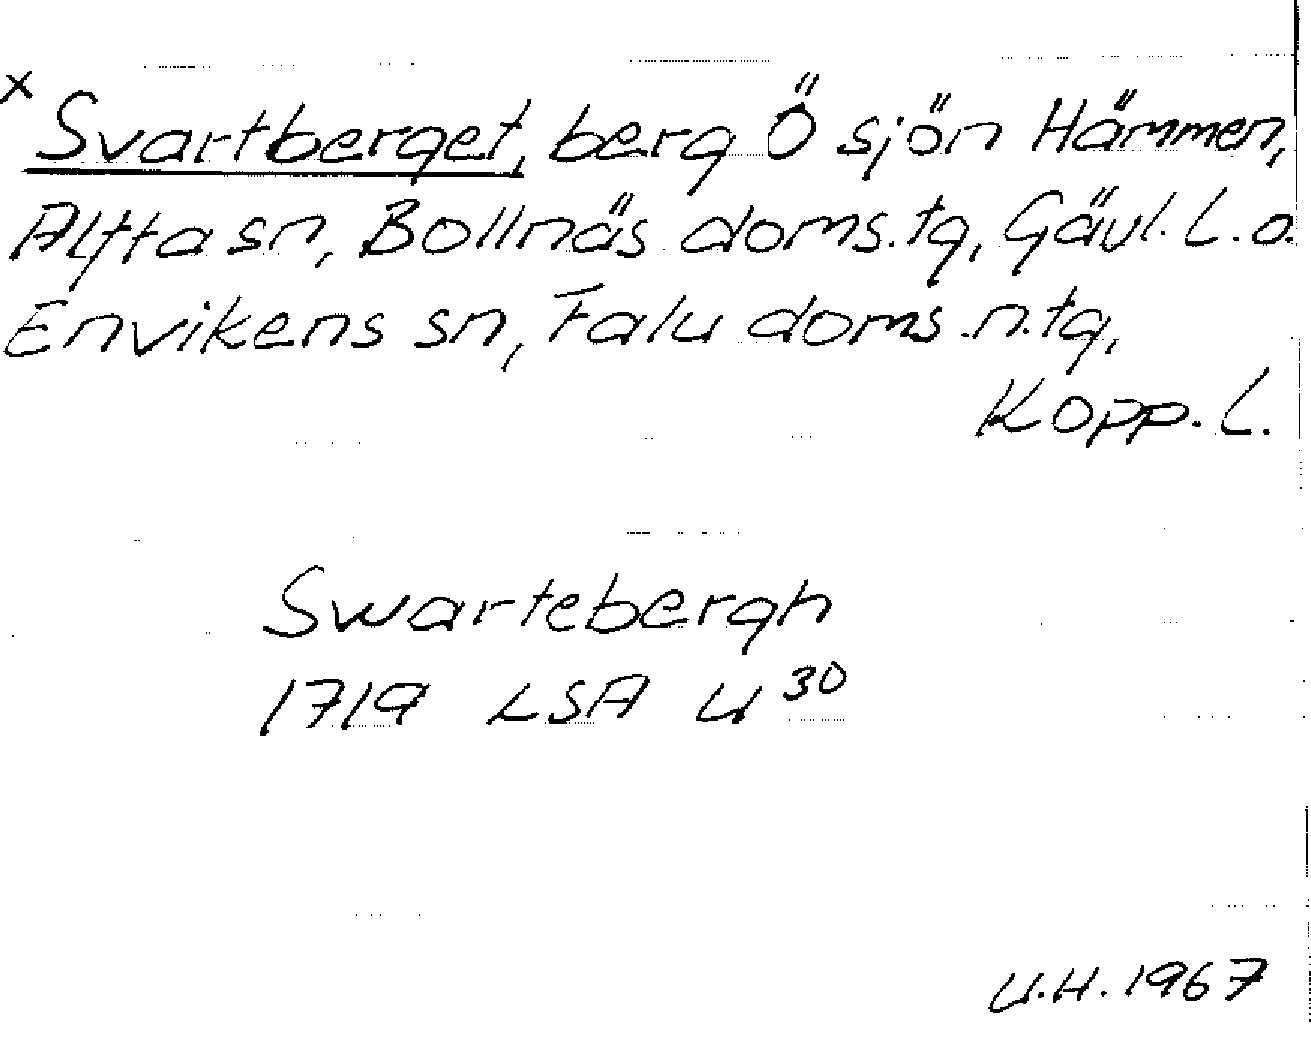 x Svartberget, berg Ö sjön Hämmen,
Alfta sn, Bollnäs doms.tg, Gävl. L. o.
Envikens sn, Falu doms.n.tg,
Kopp. L.
Swartebergh
1719 LSA U 30
U.H. 1967